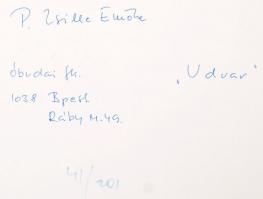 P. Zsille Emőke
Óbudai Gh.
„Udvar"
1038 Bpest
Ráby M. 49.
41/201